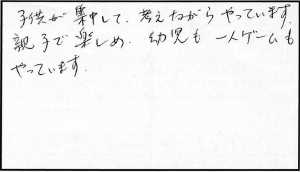 子供が集中して、考えながらやっています。
親子で楽しめ、幼児も一人ゲームも
やっています。